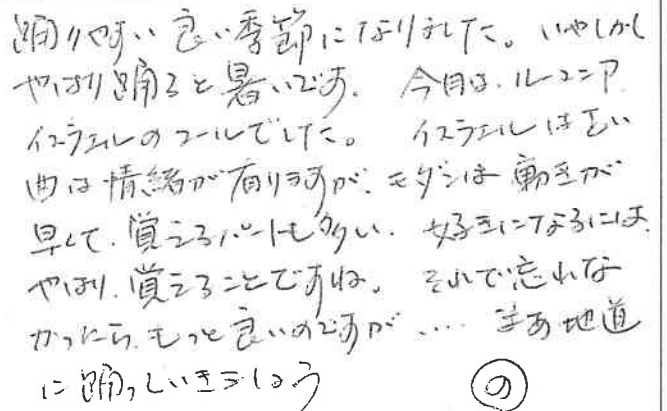 踊りやすい良い季節になりました。いやしかし
やはり踊ると暑いです。今月は、ルーマニア
イスラエルのコールでした。イスラエルは古い
曲は情緒が有りますが、モダンは動きが
早くて、覚えるパートも多い。好きになるには、
やはり、覚えることですね。それで忘れな
かったら、もっと良いのですが‥‥ まあ地道
に踊っていきましょう の